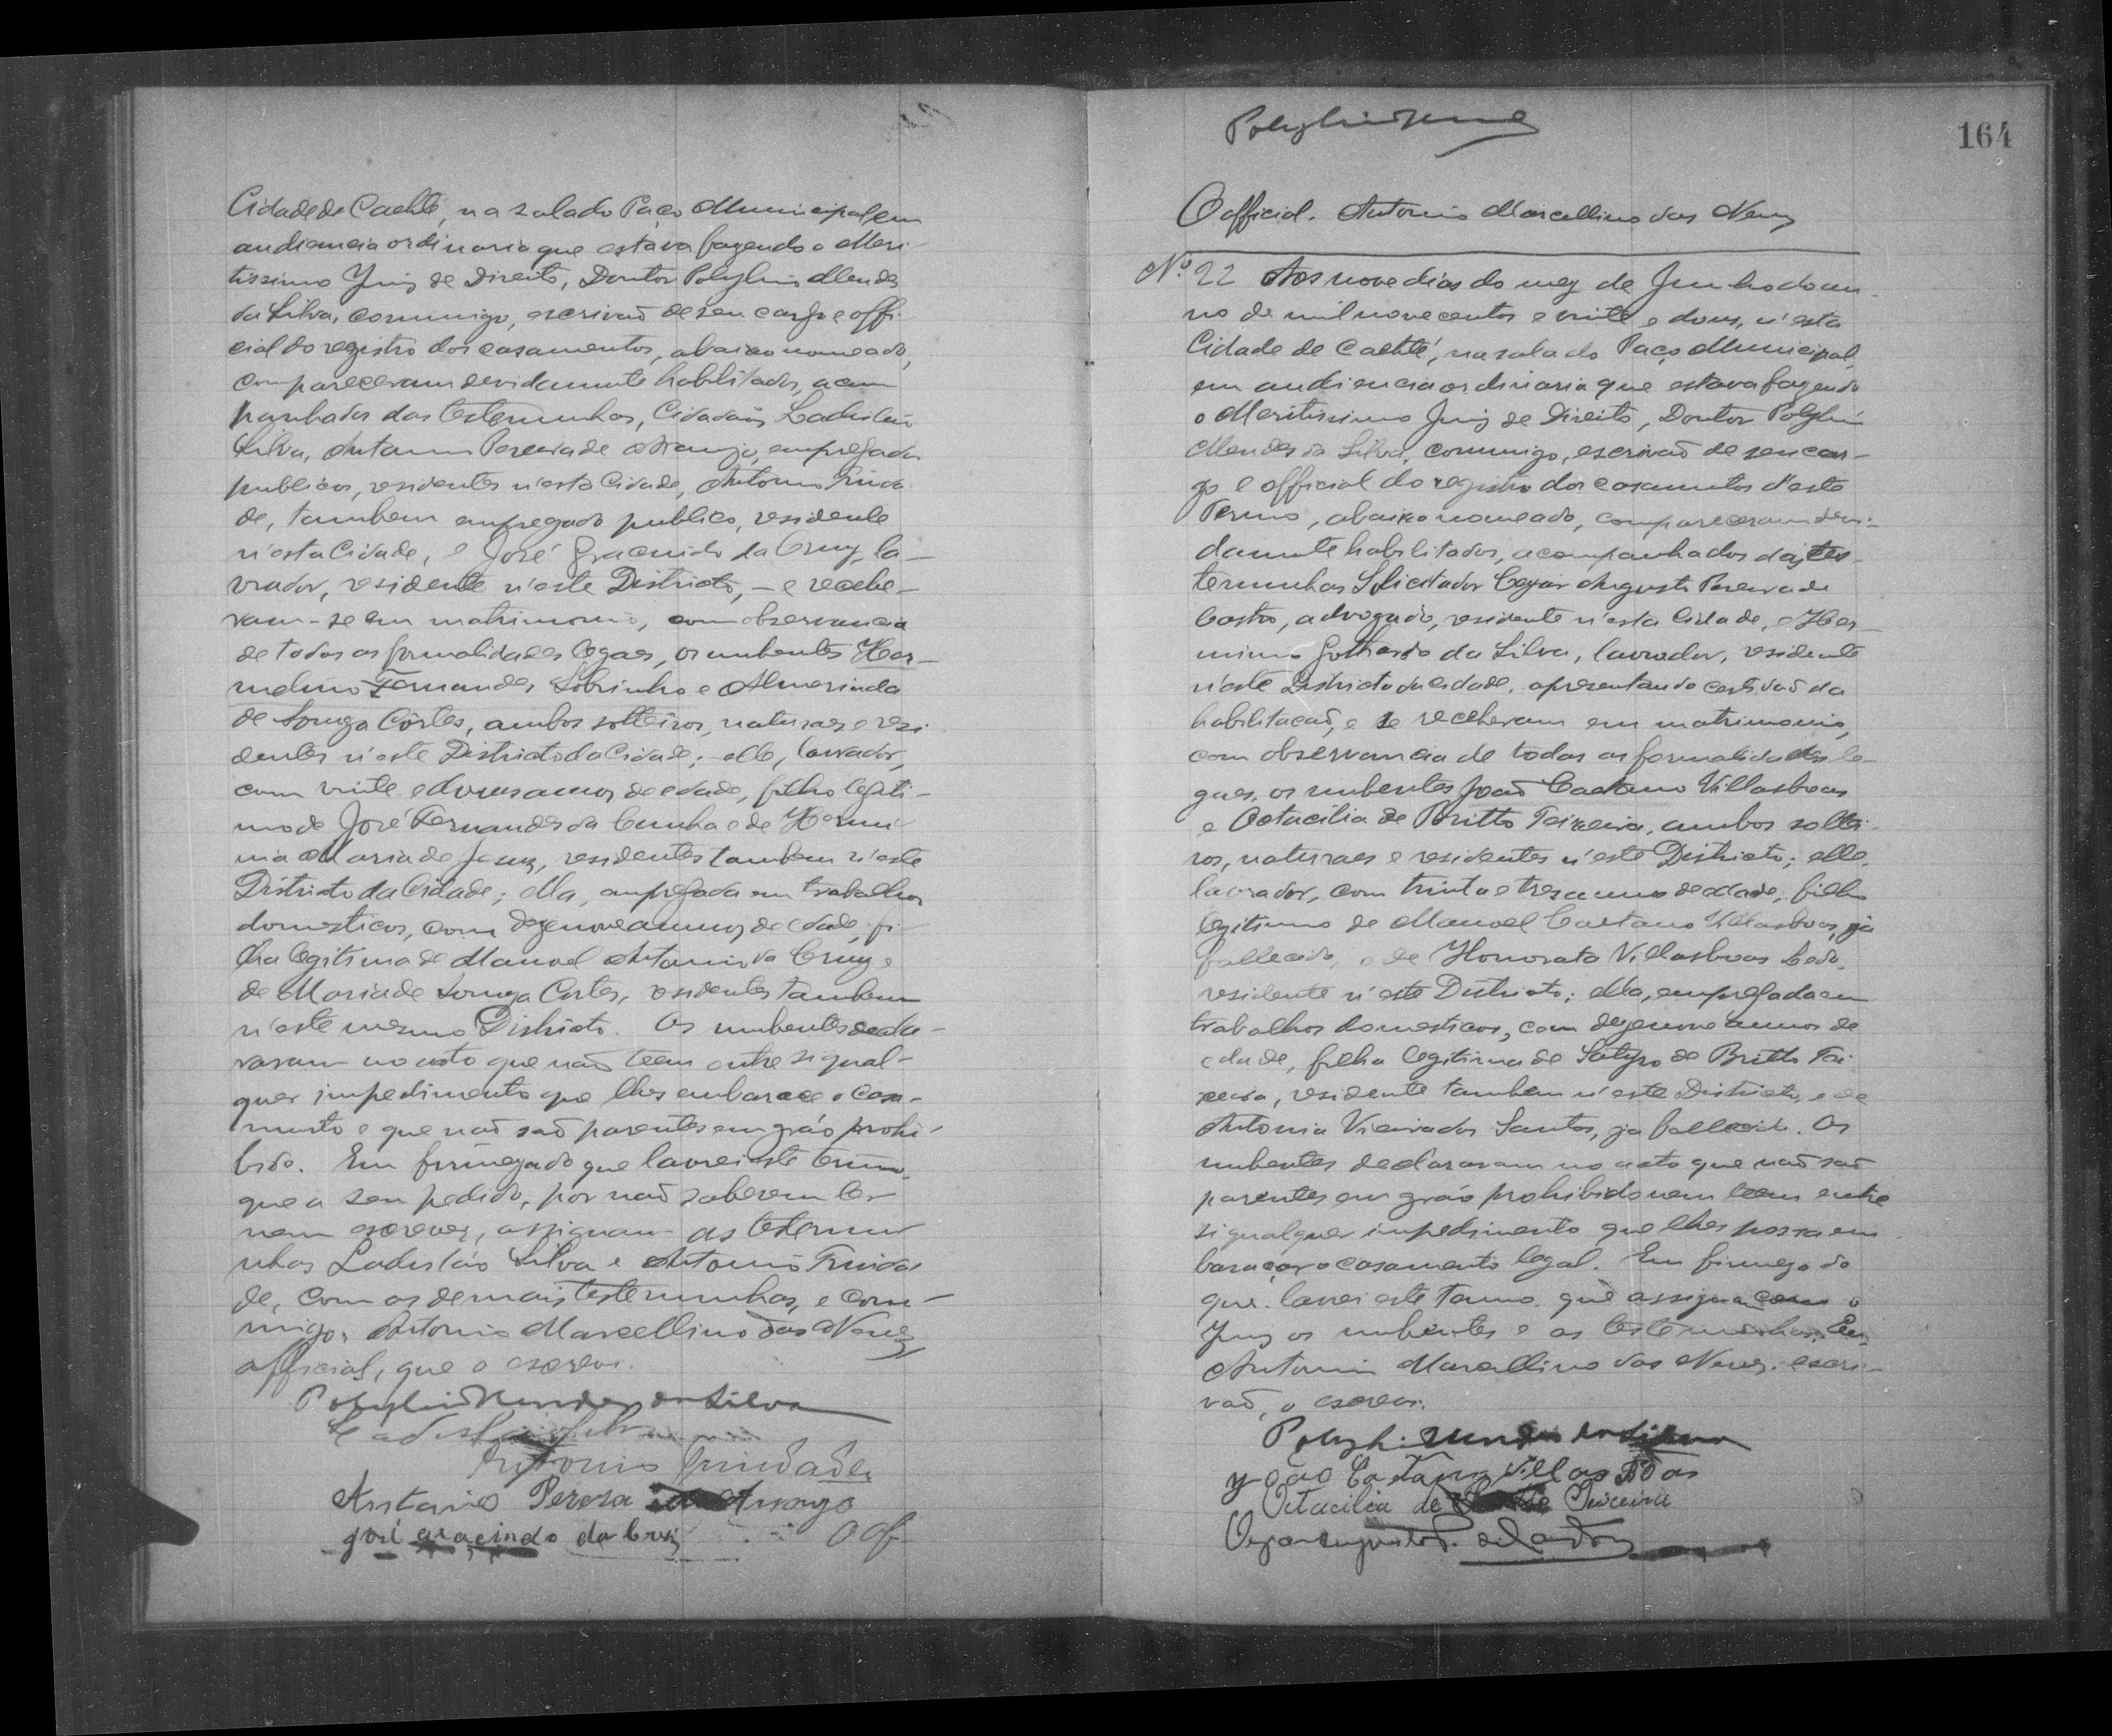 Cidade de Caeteté, na sala do Paço Municipal, em
audiencia ordinaria que estava fazendo o Meri-
tissimo Juiz de Direito, Doutor Polybio Mendes
da Silva, commigo, escrivaõ de seu cargo e offi-
cial do registro dos casamentos, abaixo nomeado,
compareceram devidamente habilitados, acom
panhados das testemunhas, Cidadaõs Ladisláo
Silva, Antonio Pereira de Araujo, empregados
publicos, residentes n'esta Cidade, Antonio Trinda
de, tambem empregado publico, residente
n'esta Cidade, e José Gracindo da Cruz, la-
vrador, residente n'este Districto, - e recebe-
ram-se em matrimonio, com observancia
de todas as formalidades legaes, os nubentes Her-
melino Fernandes Sobrinho e Almerinda
de Souza Côrtes, ambos solteiros, naturaes e resi
dentes n'este Districto da Cidade; elle, lavrador,
com vinte e dous annos de edade, filho legiti-
mo de José Fernandes da Cunha e de Hermi
nia Maria de Jesus, residentes tambem n'este
Districto da Cidade; ella, empregada em trabalhos
domesticos, com dezenove annos de edade, fi
lha legitima de Manoel Antonio da Cruz e
de Maria de Souza Cortes, residentes tambem
n'este mesmo Districto. Os nubentes decla-
raram no acto que naõ teem entre si qual-
quer impedimento que lhes embarace o casa-
mento e que naõ saõ parentes em gráo prohi-
bido. Em firmeza do que lavrei este termo,
que a seu pedido, por naõ saberem ler
nem escrever, assignam as testemu
nhas Ladisláo Silva e Antonio Trinda
de, com as demais testemunhas, e com-
migo, Antonio Marcellino das Neves
official, que o escrevi.
Polybio Mendes da Silva
Ladisláo Silva
Antonio Trindade
Antonio Perera Araujo
José gracindo da Cruz
O Of
Polybio
164
O official. Antonio Marcellino das Neves
Nº 22 Aos nove dias do mez de Junho do an-
no de mil novecentos e vinte e dous, n'esta
Cidade de Caeteté, na sala do Paço Municipal,
em audiencia ordinaria que estava fazendo
o Meritissimo Juiz de Direito, Doutor Polybio
Mendes da Silva, commigo, escrivaõ de seu car-
go e official do registro dos casamentos d'este
Termo, abaixo nomeado, compareceram devi-
damente habilitados, acompanhados das tes-
temunhas Solicitador Cezar Augusto Pereira de
Castro, advogado, residente n'esta Cidade, e Her-
minio Gothardo da Silva, lavrador, residente
n'este Districto da cidade, apresentando certidaõ da
habilitaçaõ, e se receberam em matrimonio,
com observancia de todas as formalidades le-
gaes, os nubentes Joaõ Caetano Villasboas
e Octacilia de Britto Teixeira, ambos soltei-
ros, naturaes e residentes n'este Districto; elle,
lavrador, com trinta e tres annos de edade, filho
legitimo de Manoel Caetano Villasboas, ja
fallecido, e de Honorata Villasboas
residente n'este Districto; ella, empregada em
trabalhos domesticos, com dezenove annos de
edade, filha legitima de Satyro de Britto Tei
xeira, residente tambem n'este Districto, e de
Antonia Vieira dos Santos, ja fallecida. Os
nubentes declararam no acto que naõ saõ
parentes em gráo prohibido nem teem entre
si qualquer impedimento que lhes possa em
baraçar o casamento legal. Em firmeza do
que lavrei este termo que assignam com o
Juiz os nubentes e as testemunhas. Eu,
Antonio Marcellino das Neves, escri-
vaõ, o escrevi.
Polybio Mendes da Silva
João Caetano Villas Bôas
Octacilia de Teixeira
Cezar Augusto P. de Castro